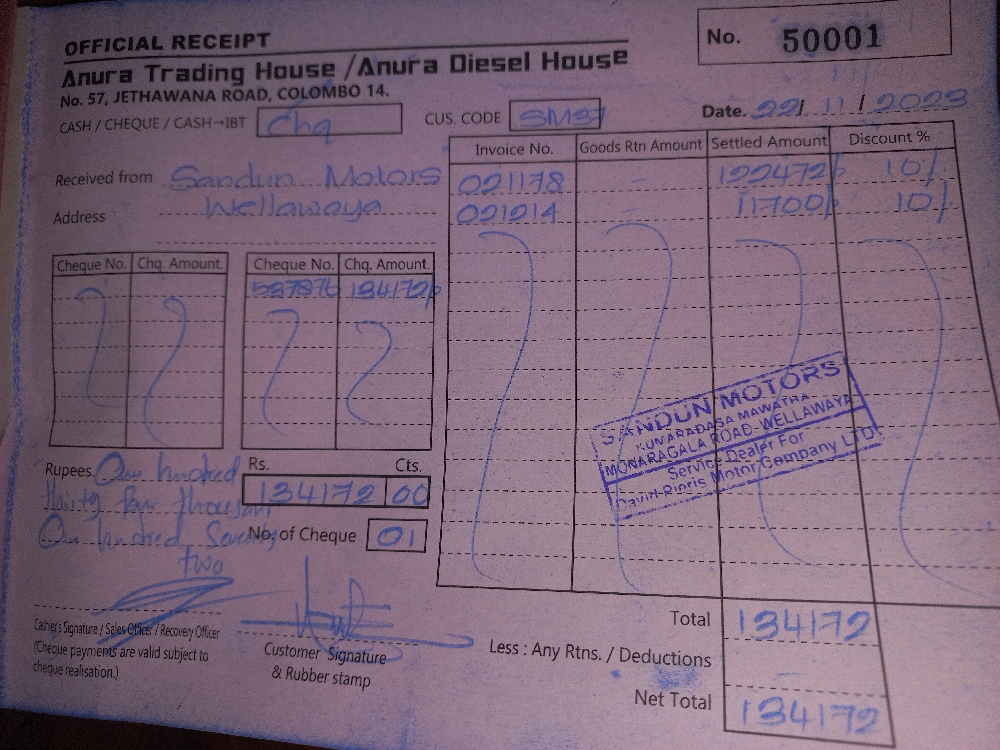 OFFICIAL RECEIPT
No. 50001
Anura Trading House /Anura Diesel House
No. 57, JETHAWANA ROAD, COLOMBO 14.
CASH / CHEQUE / CASH→IBT Chq
CUS. CODE SM37
Date. 22/ 11 / 2023
Invoice No. Goods Rtn Amount Settled Amount Discount %
Received from Sandun Motors
021178 - 122472/- 10/
Address Wellawaya
021214 - 11700/- 10/
Cheque No. Chq. Amount. Cheque No. Chq. Amount.
537876 134172/-
SANDUN MOTORS
KUMARADASA MAWATHA
MONARAGALA ROAD-WELLAWAYA
Service Dealer For
David Pieris Motor Company LTD
Rupees. One hundred
thirty four thousand
One hundred Seventy
two
Rs. Cts.
134172 00
No. of Cheque 01
Cashier's Signature / Sales Officer / Recovery Officer
(Cheque payments are valid subject to
cheque realisation.)
Customer Signature
& Rubber stamp
Total 134172
Less : Any Rtns. / Deductions -
Net Total 134172